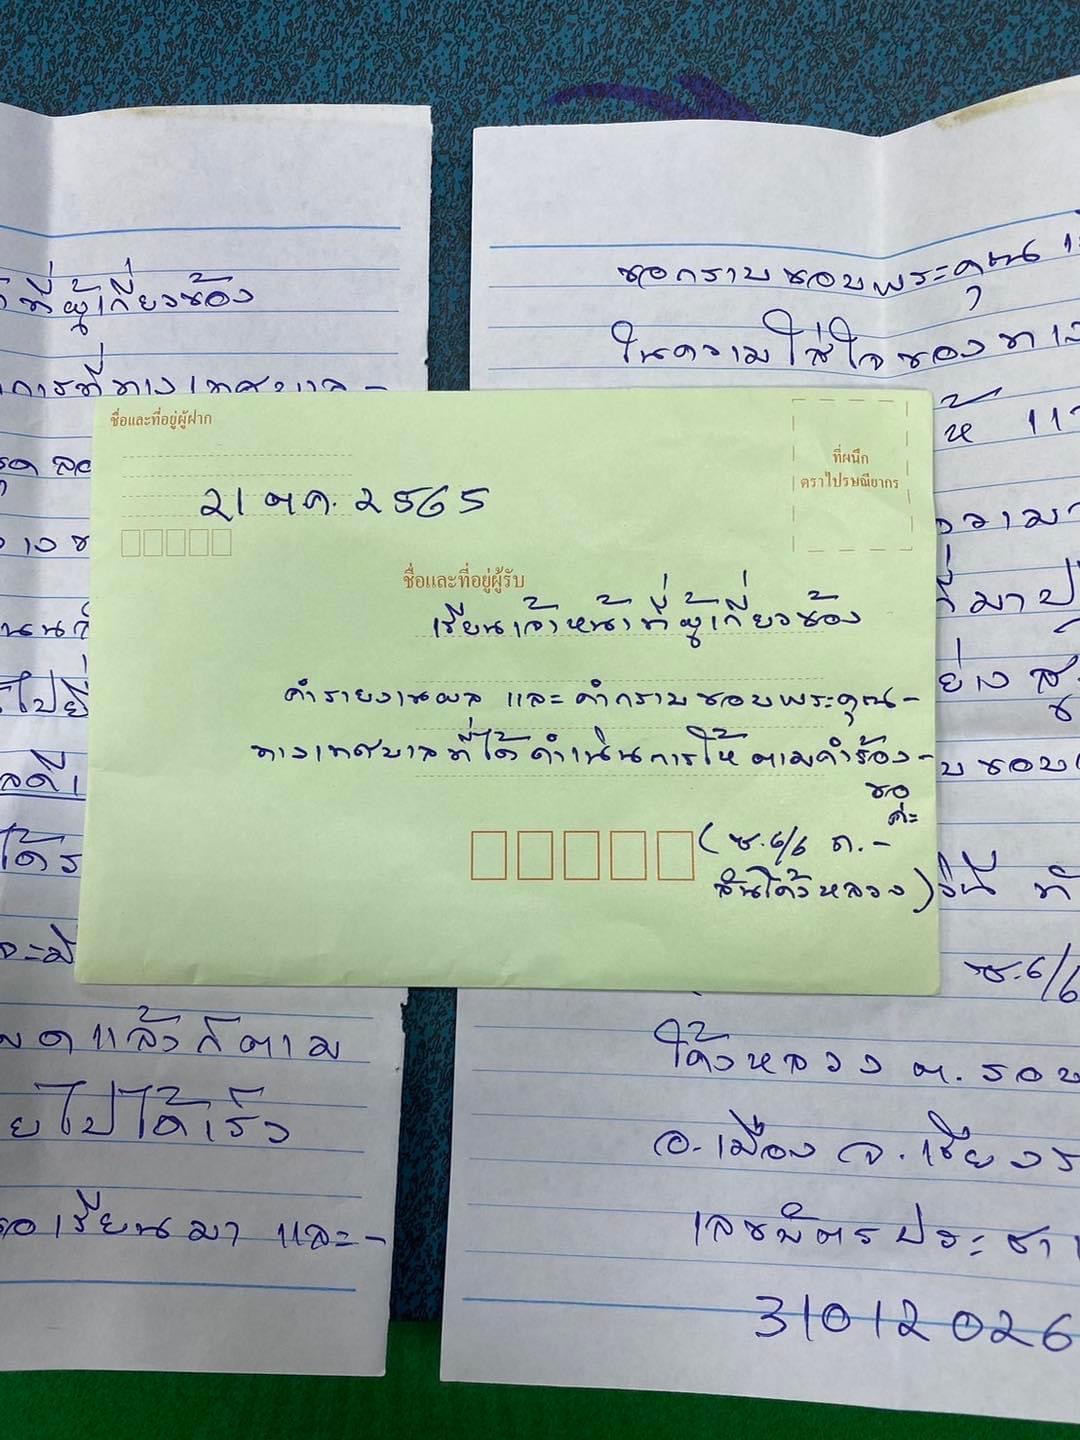 ที่ผู้เกี่ยวข้อง
การที่ทางเทศบาล-
ชื่อและที่อยู่ผู้ฝาก
21 ตค. 2565
ที่ผนึก
ตราไปรษณียากร
ชื่อและที่อยู่ผู้รับ
เรียนเจ้าหน้าที่ผู้เกี่ยวข้อง
คำรายงานผล และคำกราบขอบพระคุณ-
ทางเทศบาลที่ได้ดำเนินการให้ตามคำร้อง-
ขอ
ค่ะ
(ซ.6/6 ถ.-
สันโค้งหลวง)
แล้วก็ตาม
ไปได้เร็ว
เรียนมา และ-
ขอกราบขอบพระคุณ
ในความใส่ใจของทาง
ที่มา
อย่าง
ขอบ
นี้
ซ.6/6
โค้งหลวง ต.รอบ
อ.เมือง จ.เชียงร
เลขบัตรประชา
31012026